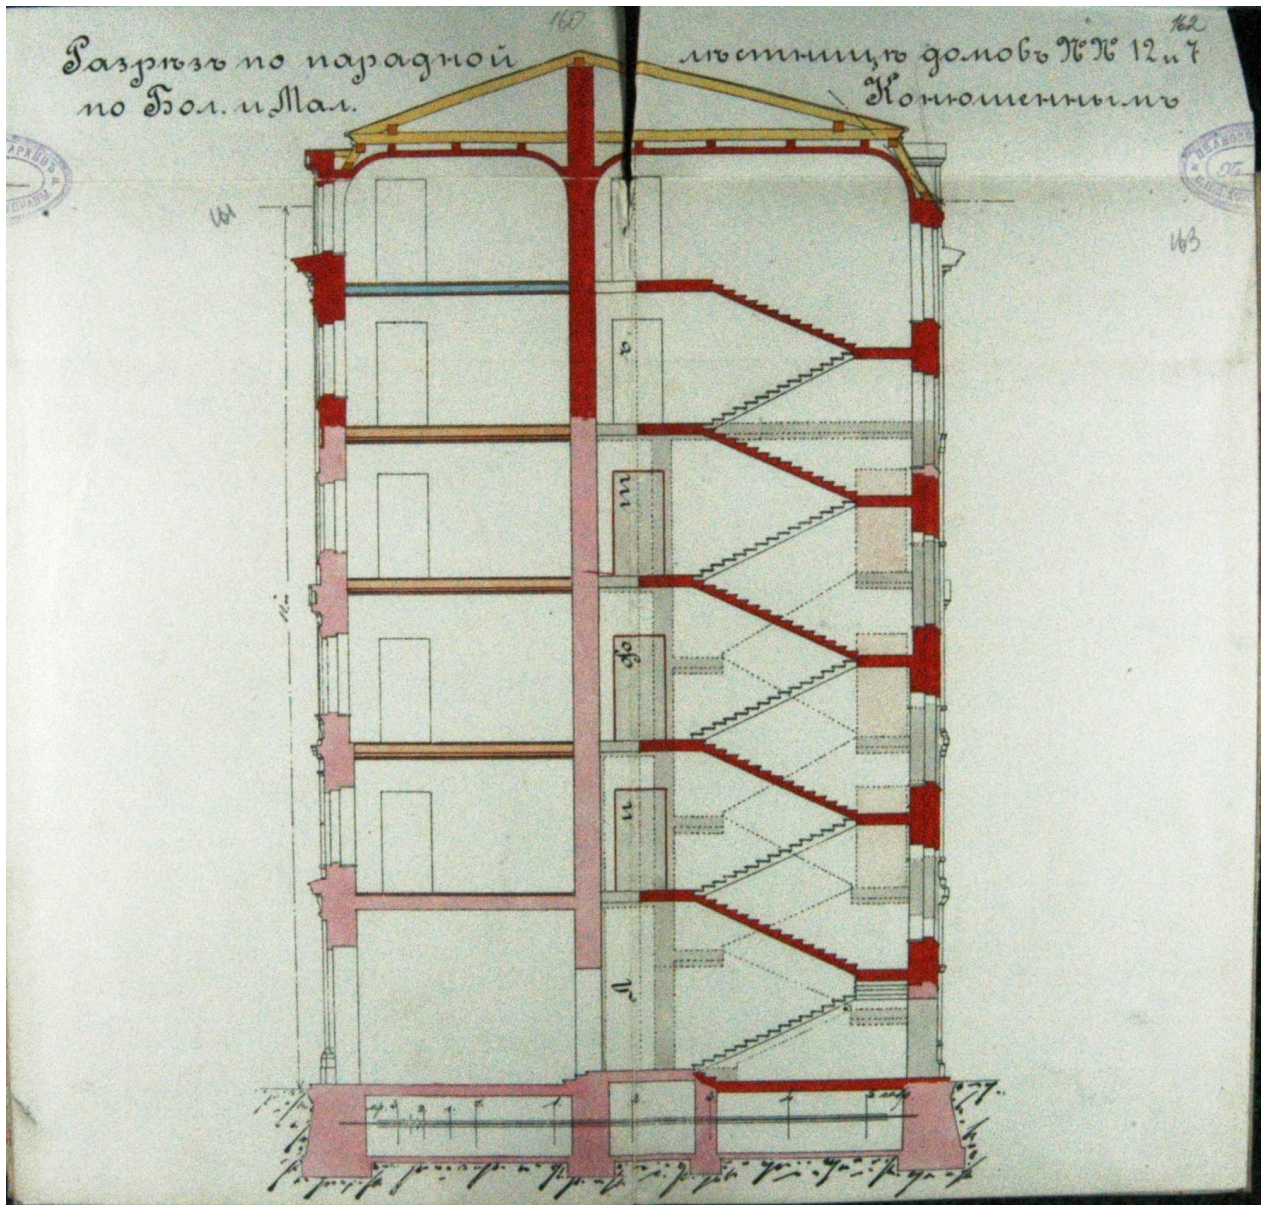 160
162
Разрѣзъ по парадной лѣстницѣ домовъ №№ 12 и 7
по Бол. и Мал. Конюшеннымъ
161
163
Лифтъ